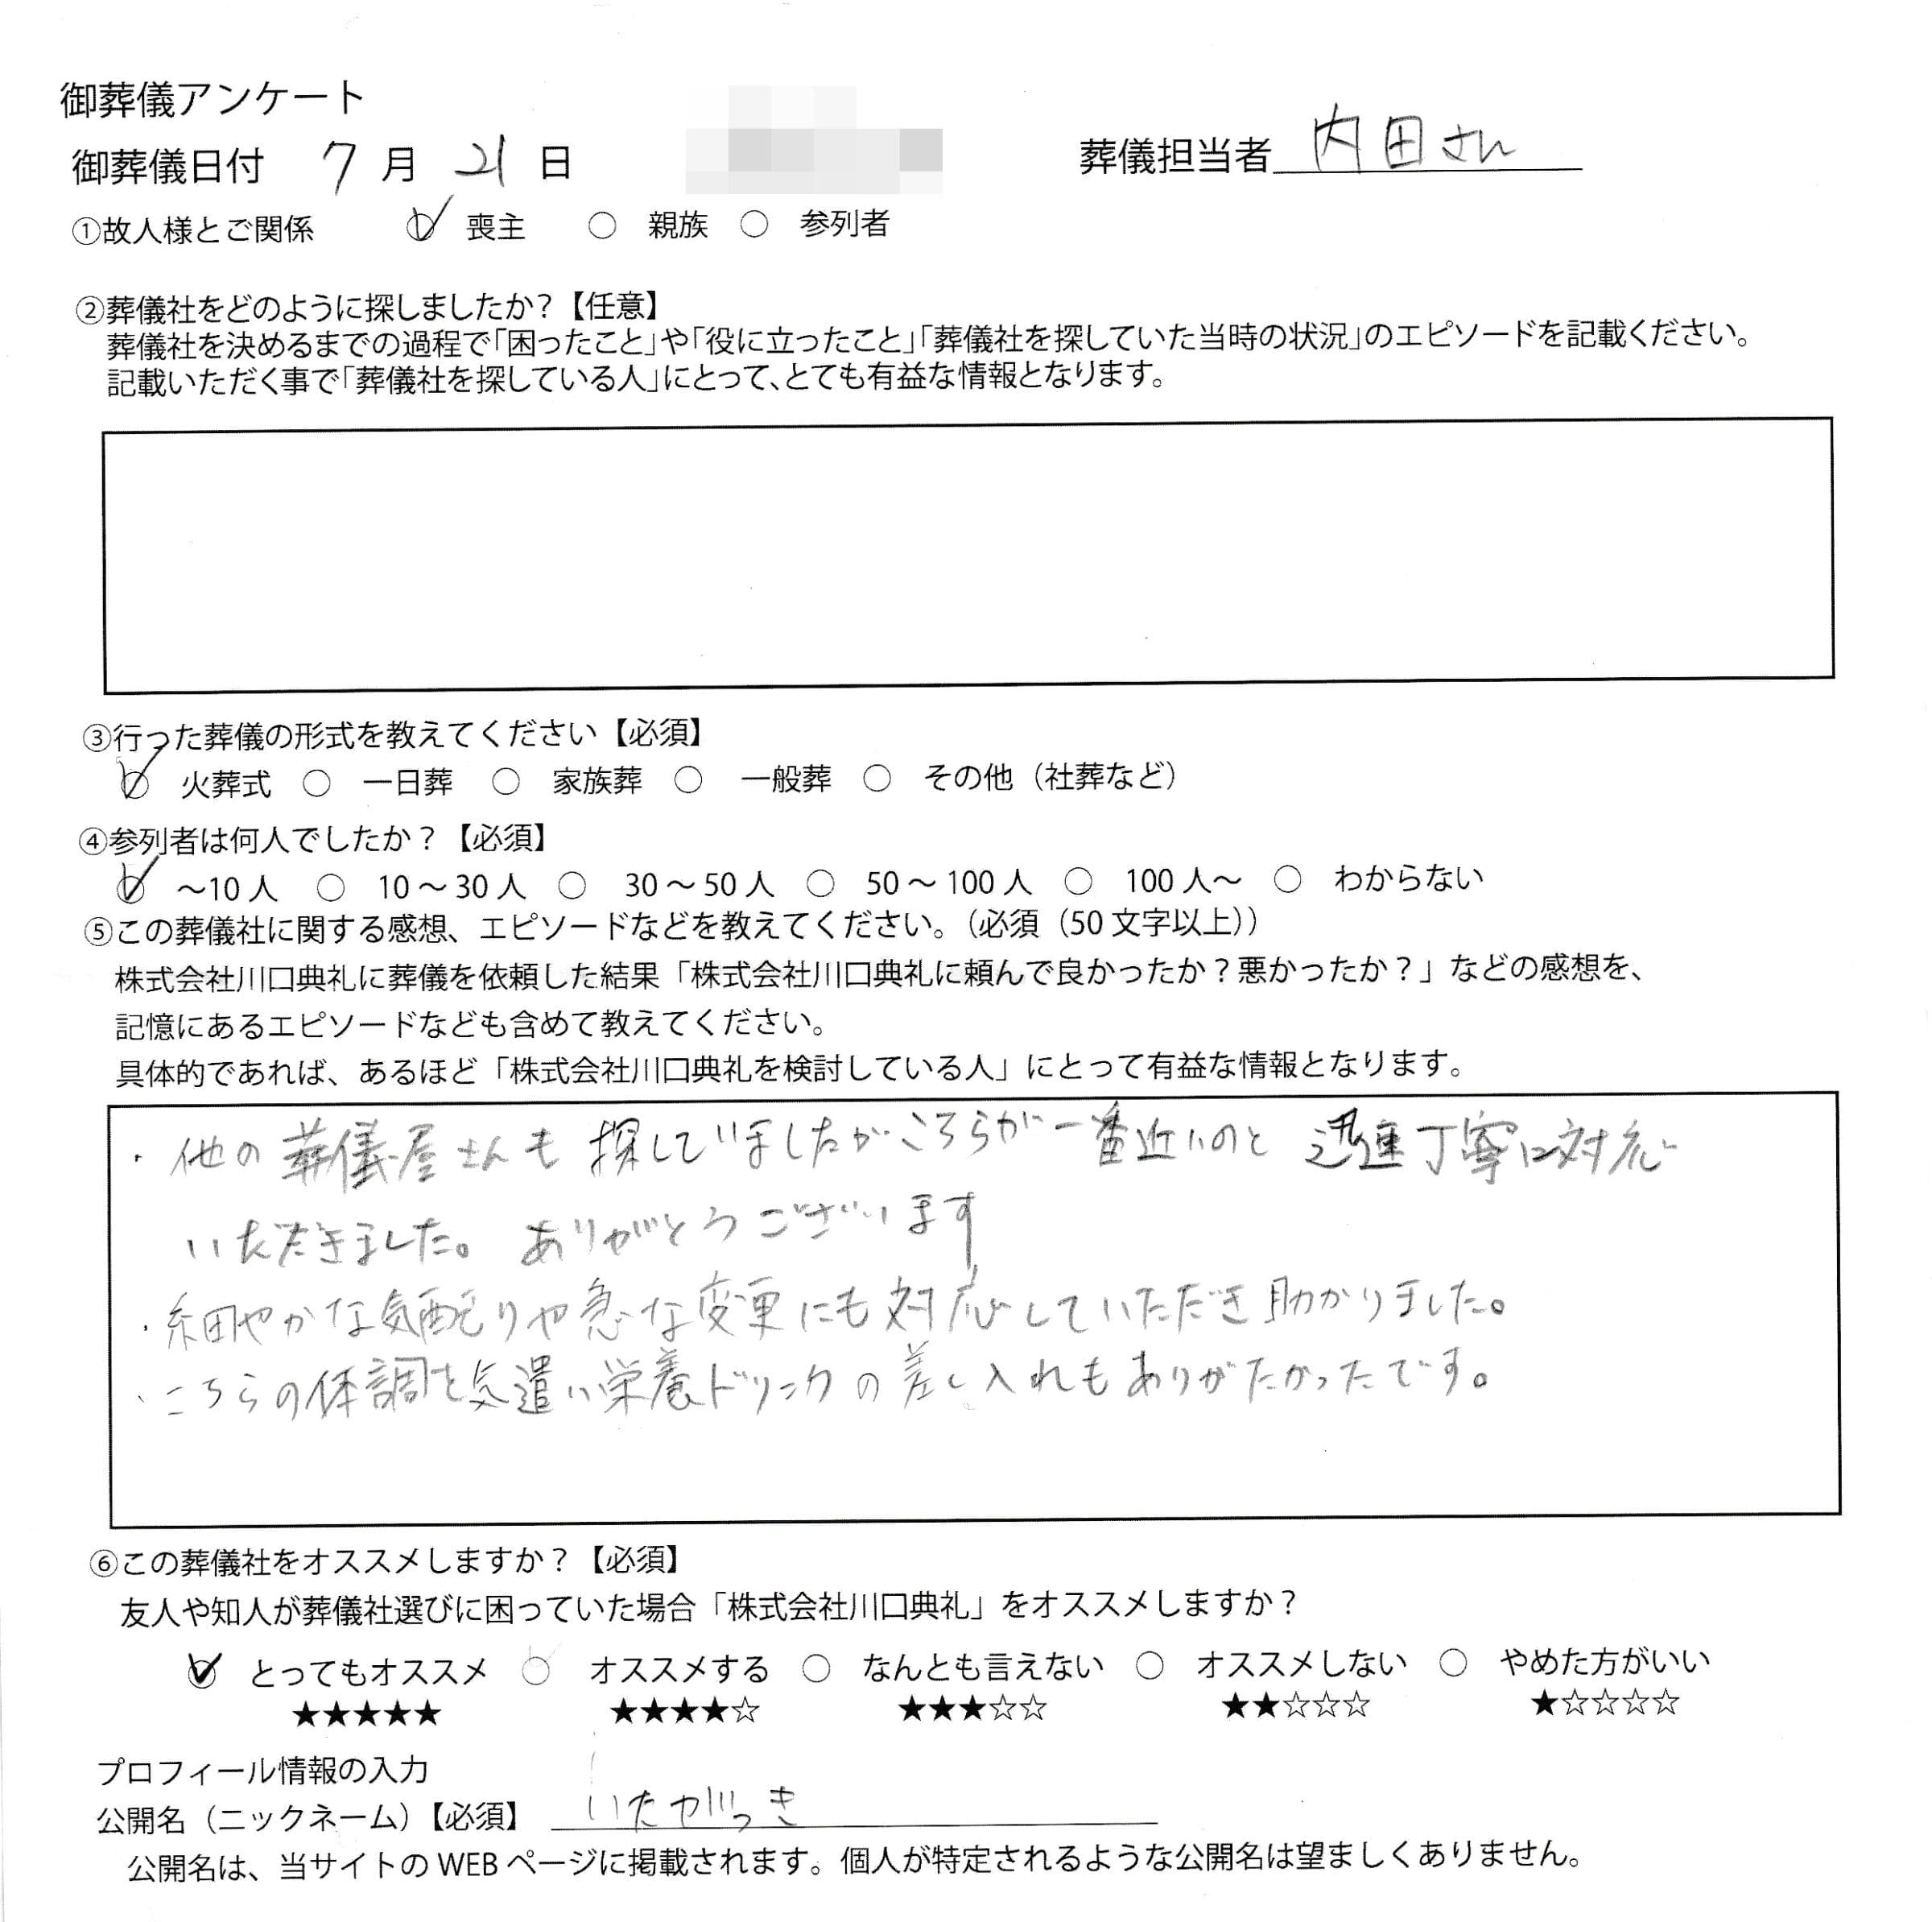 御葬儀アンケート
御葬儀日付 7月21日 葬儀担当者 内田さん
①故人様とご関係 ✓ 喪主 ○ 親族 ○ 参列者
②葬儀社をどのように探しましたか?【任意】
葬儀社を決めるまでの過程で「困ったこと」や「役に立ったこと」「葬儀社を探していた当時の状況」のエピソードを記載ください。
記載いただく事で「葬儀社を探している人」にとって、とても有益な情報となります。
③行った葬儀の形式を教えてください【必須】
✓ 火葬式 ○ 一日葬 ○ 家族葬 ○ 一般葬 ○ その他(社葬など)
④参列者は何人でしたか?【必須】
✓ ~10人 ○ 10~30人 ○ 30~50人 ○ 50~100人 ○ 100人~ ○ わからない
⑤この葬儀社に関する感想、エピソードなどを教えてください。(必須(50文字以上))
株式会社川口典礼に葬儀を依頼した結果「株式会社川口典礼に頼んで良かったか?悪かったか?」などの感想を、
記憶にあるエピソードなども含めて教えてください。
具体的であれば、あるほど「株式会社川口典礼を検討している人」にとって有益な情報となります。
・他の葬儀屋さんも探していましたがこちらが一番近いのと迅速丁寧に対応
いただきました。ありがとうございます
・細やかな気配りや急な変更にも対応していただき助かりました。
・こちらの体調を気遣い栄養ドリンクの差し入れもありがたかったです。
⑥この葬儀社をオススメしますか?【必須】
友人や知人が葬儀社選びに困っていた場合「株式会社川口典礼」をオススメしますか?
✓ とってもオススメ ○ オススメする ○ なんとも言えない ○ オススメしない ○ やめた方がいい
★★★★★ ★★★★☆ ★★★☆☆ ★★☆☆☆ ★☆☆☆☆
プロフィール情報の入力
公開名(ニックネーム)【必須】
公開名は、当サイトのWEBページに掲載されます。個人が特定されるような公開名は望ましくありません。